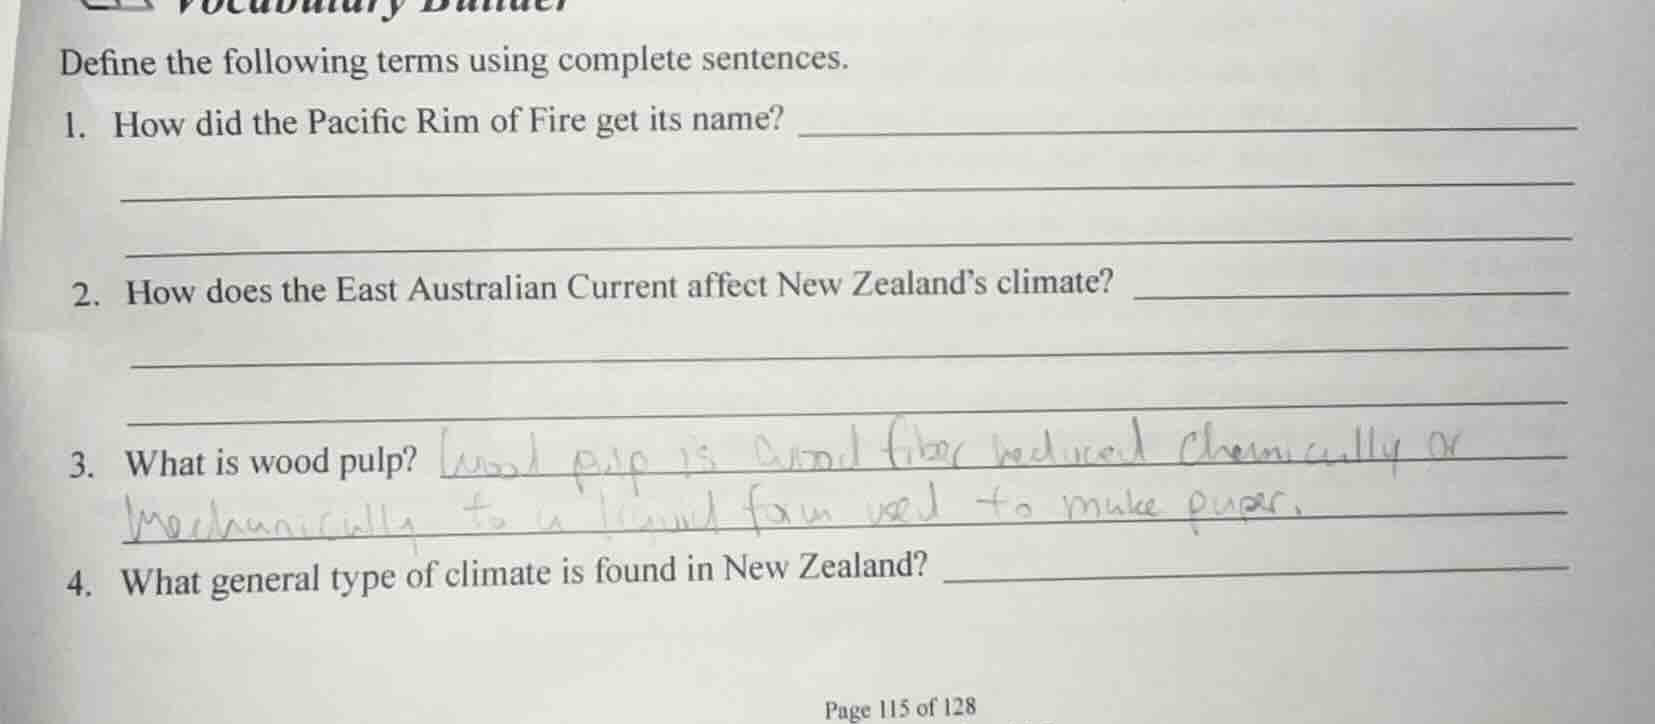 Vocabulary Builder
Define the following terms using complete sentences.
1. How did the Pacific Rim of Fire get its name?
2. How does the East Australian Current affect New Zealand's climate?
3. What is wood pulp? Wood pulp is wood fiber reduced chemically or
mechanically to a liquid form used to make paper.
4. What general type of climate is found in New Zealand?
Page 115 of 128